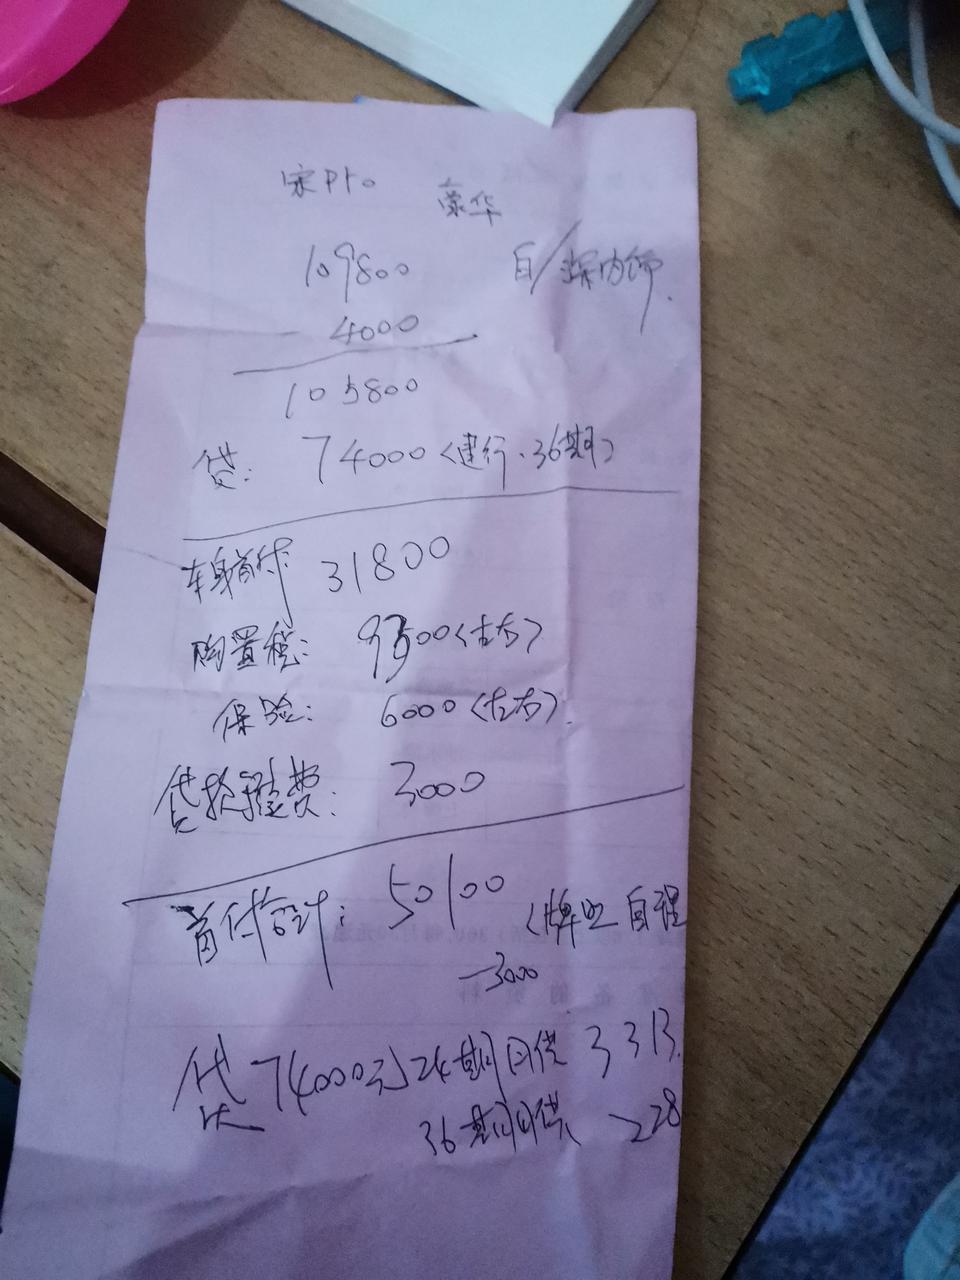 宋Pro 豪华
109800 白/深内饰.
4000
105800
贷: 74000(建行.36期)
车身首付 31800
购置税: 9300(左右)
保险: 6000(左右)
贷投 费: 3000
首付合计: 50100 (牌照自理
-3000
贷 74000元 24期月供 3313.
36期月供 228